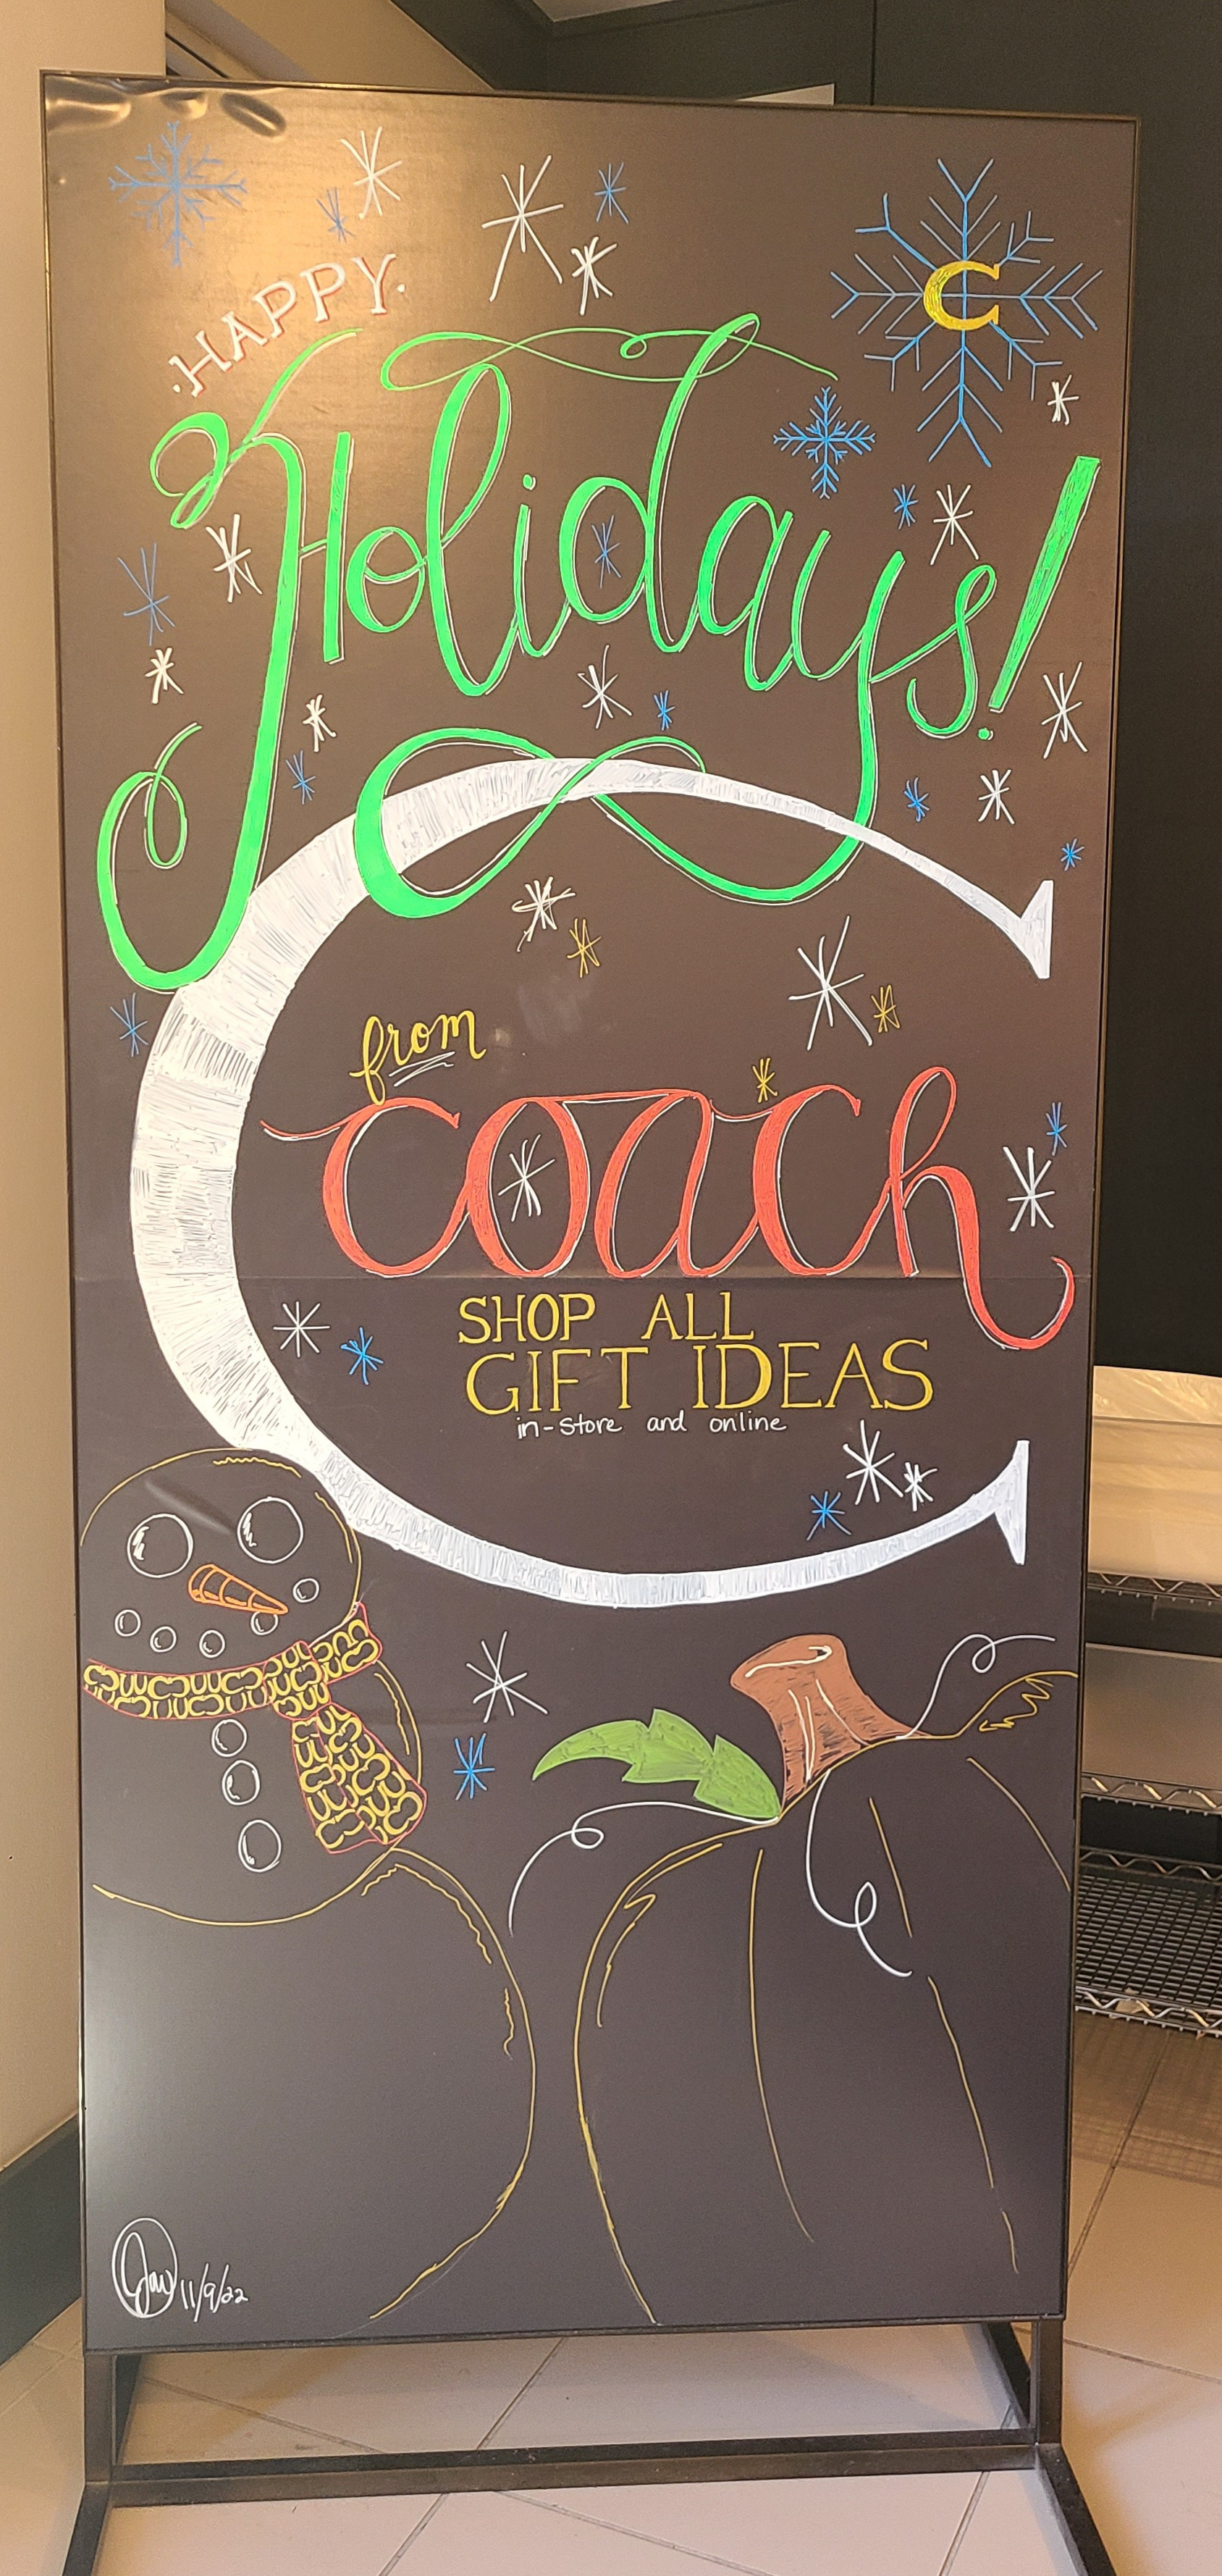 HAPPY
Holidays!
C
C
from
coach
SHOP ALL
GIFT IDEAS
in-store and online
11/9/22